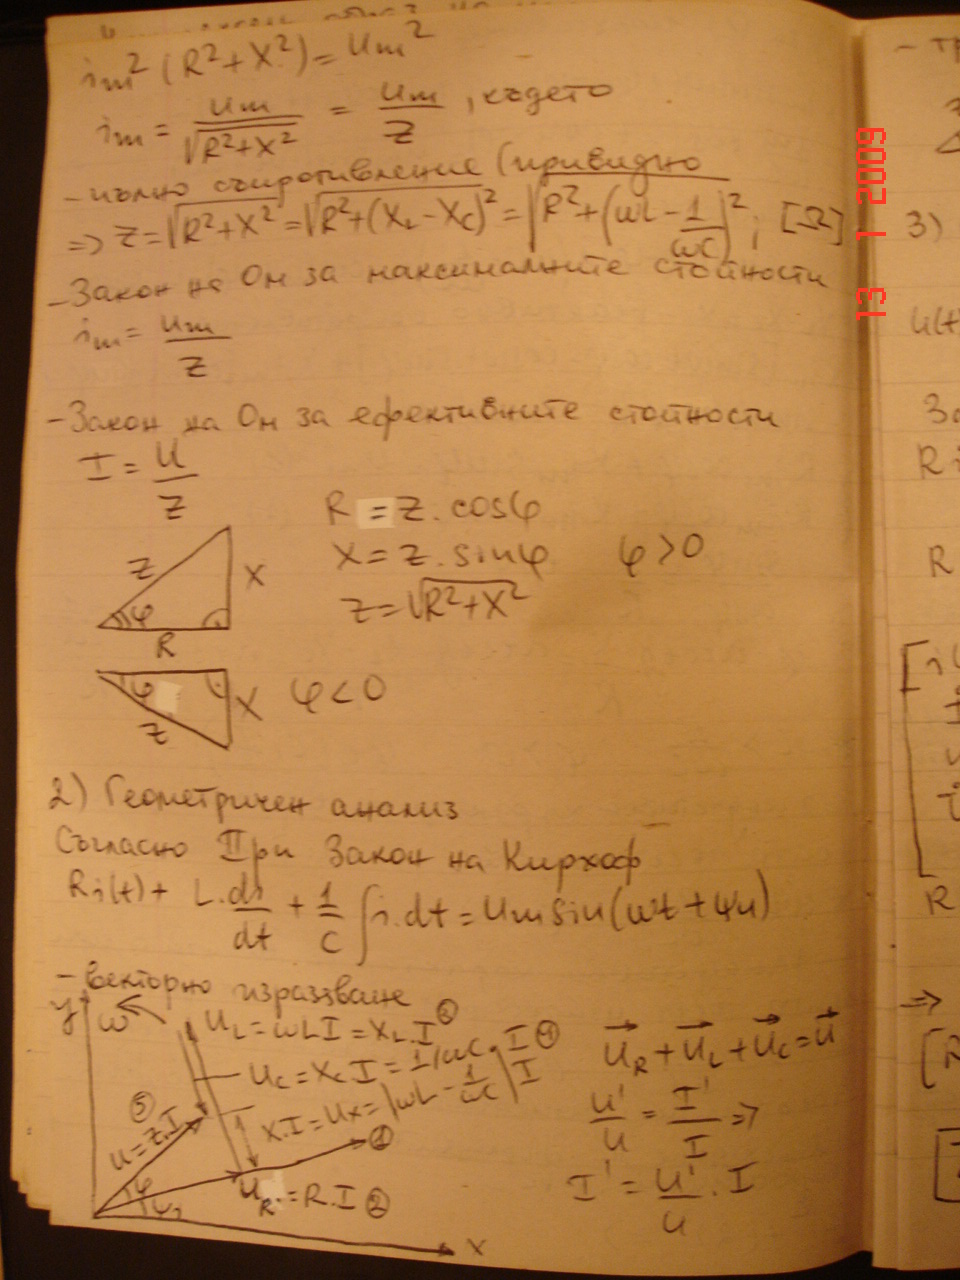 im² (R²+X²) = Um²
im = Um/√(R²+X²) = Um/Z , където
- пълно съпротивление (привидно
=> Z=√(R²+X²) = √(R²+(XL-XC)²) = √(R²+(ωL-1/ωC)²) ; [Ω]
- Закон на Ом за максималните стойности
im = Um/Z
- Закон на Ом за ефективните стойности
I = U/Z
R = Z.cosφ
X = Z.sinφ φ>0
Z=√(R²+X²)
Z X φ R
φ X Z φ<0
2) Геометричен анализ
Съгласно II ри Закон на Кирхоф
Ri(t) + L.di/dt + 1/C ∫i.dt = Um sin(ωt+ψu)
- векторно изразяване
y ω UL = ωLI = XL.I ③
UC = XC I = 1/ωC . I ④
X.I = UX = |ωL - 1/ωC| I
⑤ U=Z.I
①
φ ψi UR = R.I ②
x
UR + UL + UC = U
U'/U = I'/I =>
I' = U'/U . I
13 1 2009
- тр
3)
U(t
За
R i
R
R
=>
[R